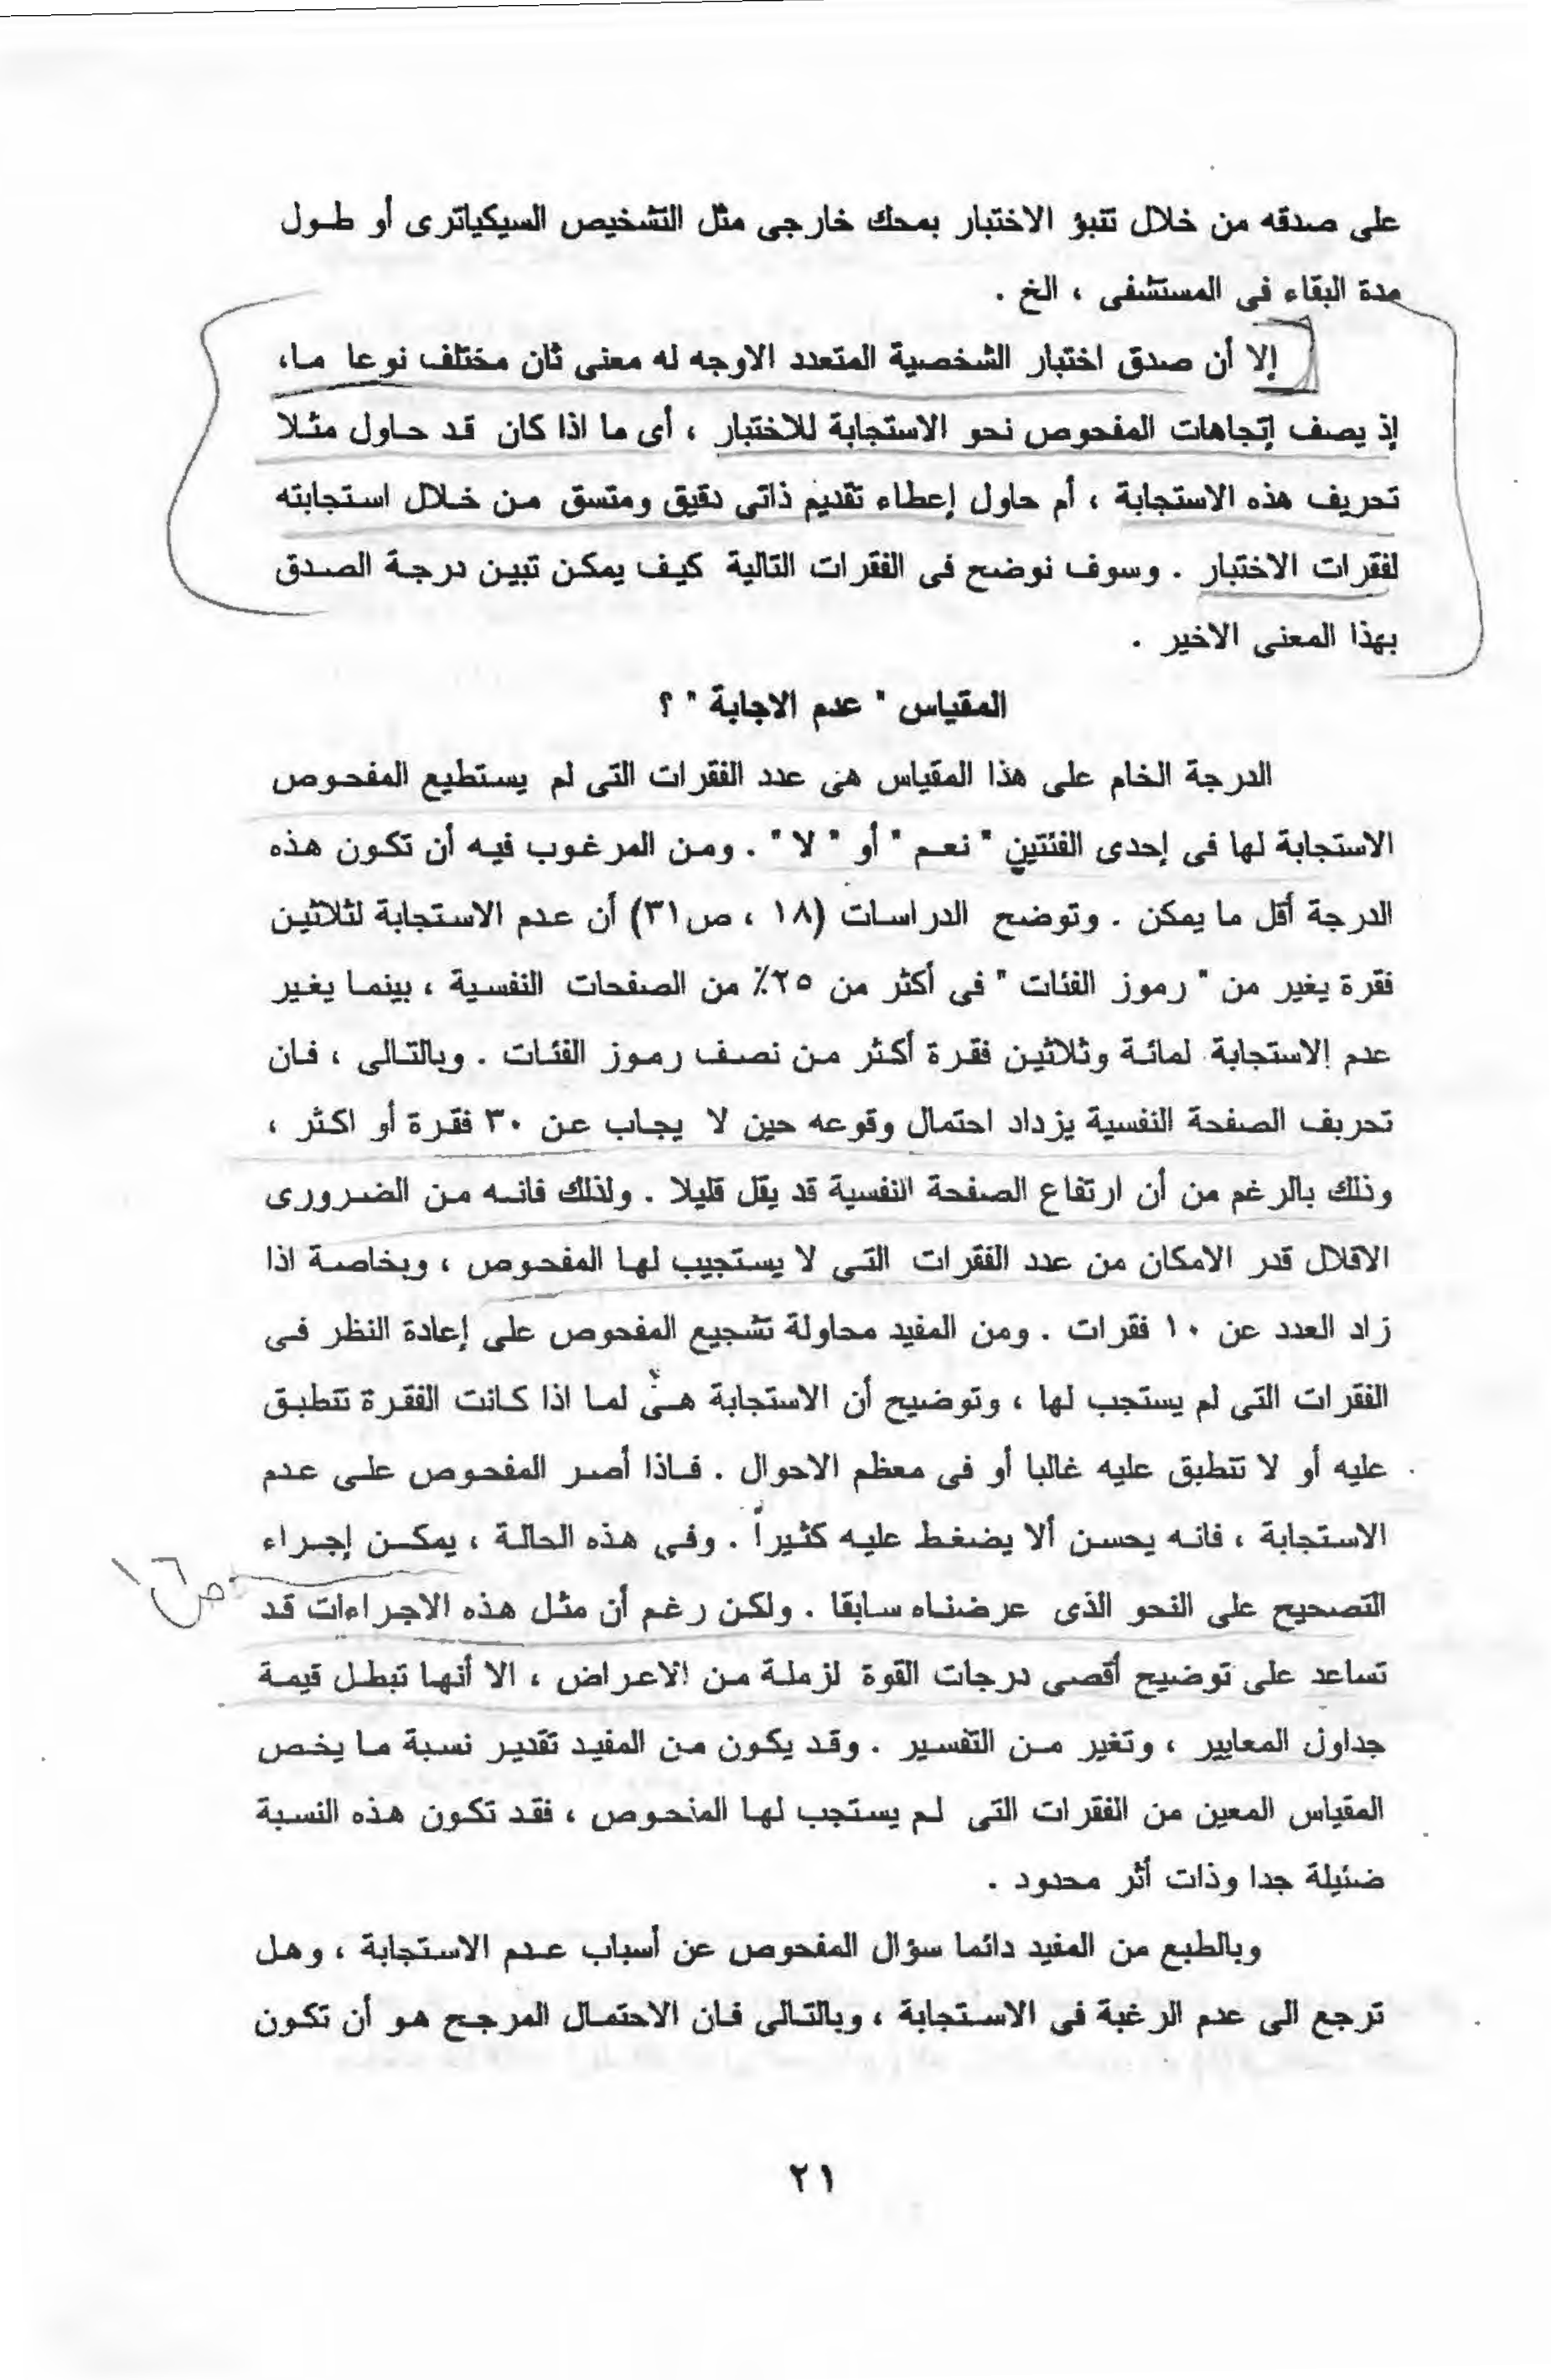 على صدقه من خلال تنبؤ الاختبار بمحك خارجى مثل التشخيص السيكياترى أو طول
مدة البقاء فى المستشفى ، الخ .
إلا أن صدق اختبار الشخصية المتعدد الاوجه له معنى ثان مختلف نوعا ما،
إذ يصف إتجاهات المفحوص نحو الاستجابة للاختبار ، أى ما اذا كان قد حاول مثلا
تحريف هذه الاستجابة ، أم حاول إعطاء تقديم ذاتى دقيق ومتسق من خلال استجابته
لفقرات الاختبار . وسوف نوضح فى الفقرات التالية كيف يمكن تبين درجة الصدق
بهذا المعنى الاخير .
المقياس " عدم الاجابة " ؟
الدرجة الخام على هذا المقياس هى عدد الفقرات التى لم يستطيع المفحوص
الاستجابة لها فى إحدى الفئتين " نعم " أو " لا " . ومن المرغوب فيه أن تكون هذه
الدرجة أقل ما يمكن . وتوضح الدراسات (١٨ ، ص٣١) أن عدم الاستجابة لثلاثين
فقرة يغير من " رموز الفئات " فى أكثر من ٢٥٪ من الصفحات النفسية ، بينما يغير
عدم الاستجابة لمائة وثلاثين فقرة أكثر من نصف رموز الفئات . وبالتالى ، فان
تحريف الصفحة النفسية يزداد احتمال وقوعه حين لا يجاب عن ٣٠ فقرة أو اكثر ،
وذلك بالرغم من أن ارتفاع الصفحة النفسية قد يقل قليلا . ولذلك فانه من الضرورى
الاقلال قدر الامكان من عدد الفقرات التى لا يستجيب لها المفحوص ، وبخاصة اذا
زاد العدد عن ١٠ فقرات . ومن المفيد محاولة تشجيع المفحوص على إعادة النظر فى
الفقرات التى لم يستجب لها ، وتوضيح أن الاستجابة هى لما اذا كانت الفقرة تتطبق
عليه أو لا تتطبق عليه غالبا أو فى معظم الاحوال . فاذا أصر المفحوص على عدم
الاستجابة ، فانه يحسن ألا يضغط عليه كثيراً . وفى هذه الحالة ، يمكن إجراء
التصحيح على النحو الذى عرضناه سابقا . ولكن رغم أن مثل هذه الاجراءات قد
ص ١٦
تساعد على توضيح أقصى درجات القوة لزملة من الاعراض ، الا أنها تبطل قيمة
جداول المعايير ، وتغير من التفسير . وقد يكون من المفيد تقدير نسبة ما يخص
المقياس المعين من الفقرات التى لم يستجب لها المفحوص ، فقد تكون هذه النسبة
ضئيلة جدا وذات أثر محدود .
وبالطبع من المفيد دائما سؤال المفحوص عن أسباب عدم الاستجابة ، وهل
ترجع الى عدم الرغبة فى الاستجابة ، وبالتالى فان الاحتمال المرجح هو أن تكون
٢١